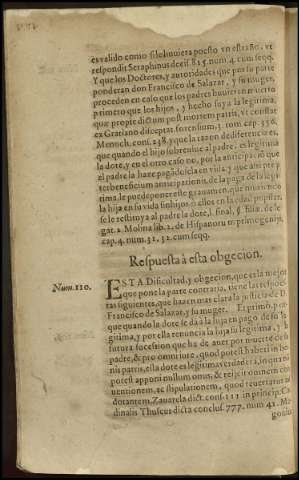 es valido como si lo huviera puesto vn estraño, vt
respondit Seraphinus decis. 815. num. 4. cum seqq.
Y que los Doctores, y autoridades que por su parte
ponderan don Francisco de Salazar, y su muger,
proceden en caso que los padres huviere muerto
primero que los hijos, y hecho suya la legitima,
quæ propie dictum post mortem patris, vt constat
ex Gratiano disceptat. forensium, 3. tom. cap. 536.
Menoch. cons. 238. y que la razon de diferencia es,
que quando el hijo sobrevive al padre, es legitima
la dote, y en el otro caso no, por la anticipacion que
el padre la haze pagadola en vida, y que assi propter
beneficium anticipationis, de la paga de la legitima
le puede poner este gravamen, que muriendo
la hija en su vida sin hijos, o ellos en la edad pupilar,
se le restituya al padre la dote, l. final, § filiæ, de legat.
2. Molina lib. 2. de Hispanorum primogenijs,
cap. 4. num. 31. 32. cum seqq.
Respuesta à esta obgecion.
Num. 110.
ESTA Dificultad, y obgecion, que es la mejor
que pone la parte contraria, tiene las respuestas
siguientes, que haze mas clara la justicia de D.
Francisco de Salazar, y su muger. El primò, porque
quando la dote se dà à la hija en pago de su legitima,
y por ella renuncia la hija su legitima, y la
futura sucession que ha de aver por muerte de su
padre, & pro omni iure, quod potest habere in bonis
patris, ella dote es legitima verdadera, in qua non
potest apponi nullum onus, & reijcitur omnem conuentionem,
& stipulationem, quod reuertatur ad
dotantem. Zauarela dict. cons. 111. in princip. Cardinalis
Thuscus dicta conclus. 777. num. 42. Me-